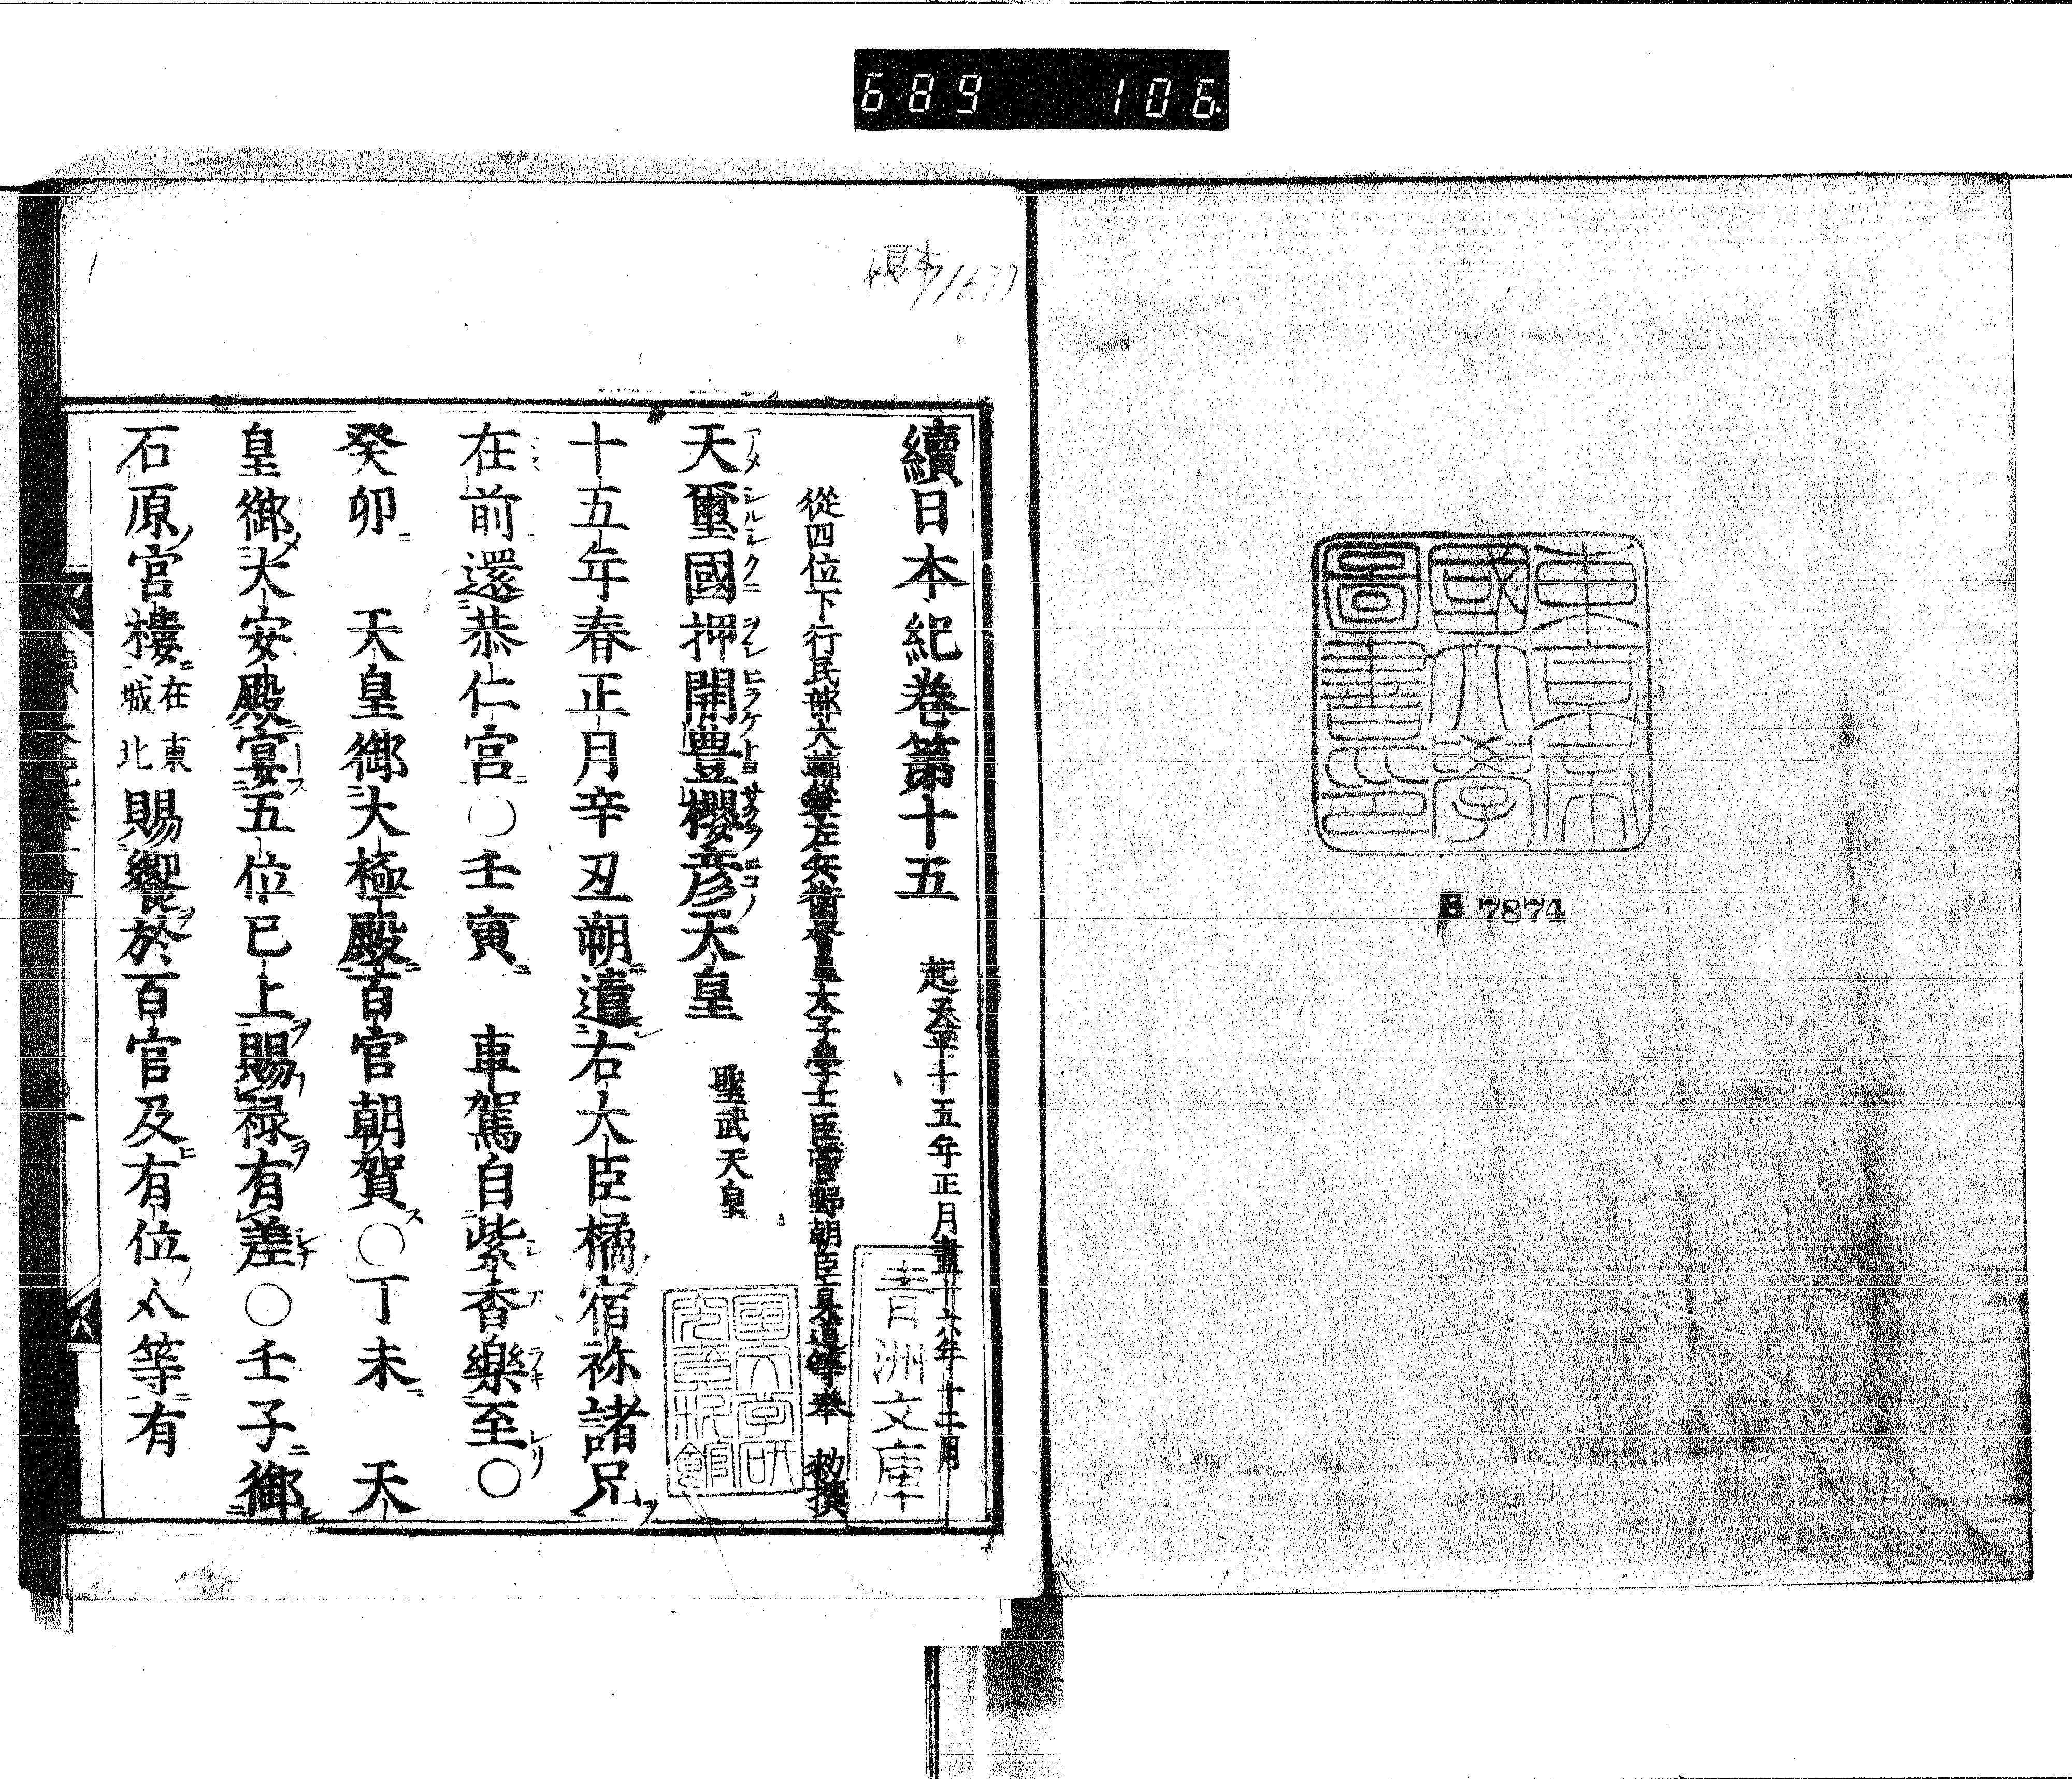 689 106.
東京帝
國大學
圖書印
B 7874
續日本紀卷第十五 起天平十五年正月盡十六年十二月
從四位下行民部大輔兼左兵衛督皇太子學士臣菅野朝臣眞道等奉 勅撰
青洲文庫
天璽國押開豊櫻彦天皇 聖武天皇
アメシルシクニヲシヒラケトヨサクラヒコノ
十五年春正月辛丑朔遣右大臣橘宿祢諸兄
在前還恭仁宮○壬寅 車駕自紫香樂至○
シカラキ
癸卯 天皇御大極殿百官朝賀○丁未 天
皇御大安殿宴五位已上賜禄有差○壬子御
石原宮樓在東城北賜饗於百官及有位人等有